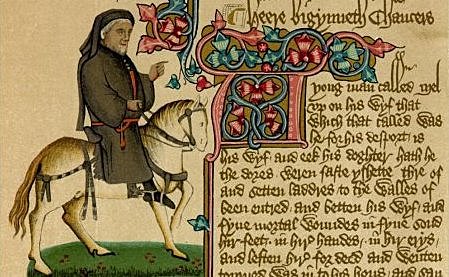 heere bigynneth Chaucers
yong man called Mel
vp on his wyf that
which that called was
for his desport is
his wyf and eek his doghter hath he
the dores weren faste yshette Thre of
and setten laddres to the walles of
been entred and betten his wyf and
fyue mortal woundes in fyue sond
hir feet in hir handes in hir erys
and leften hir for deed and wenten
torned was in to his hous and